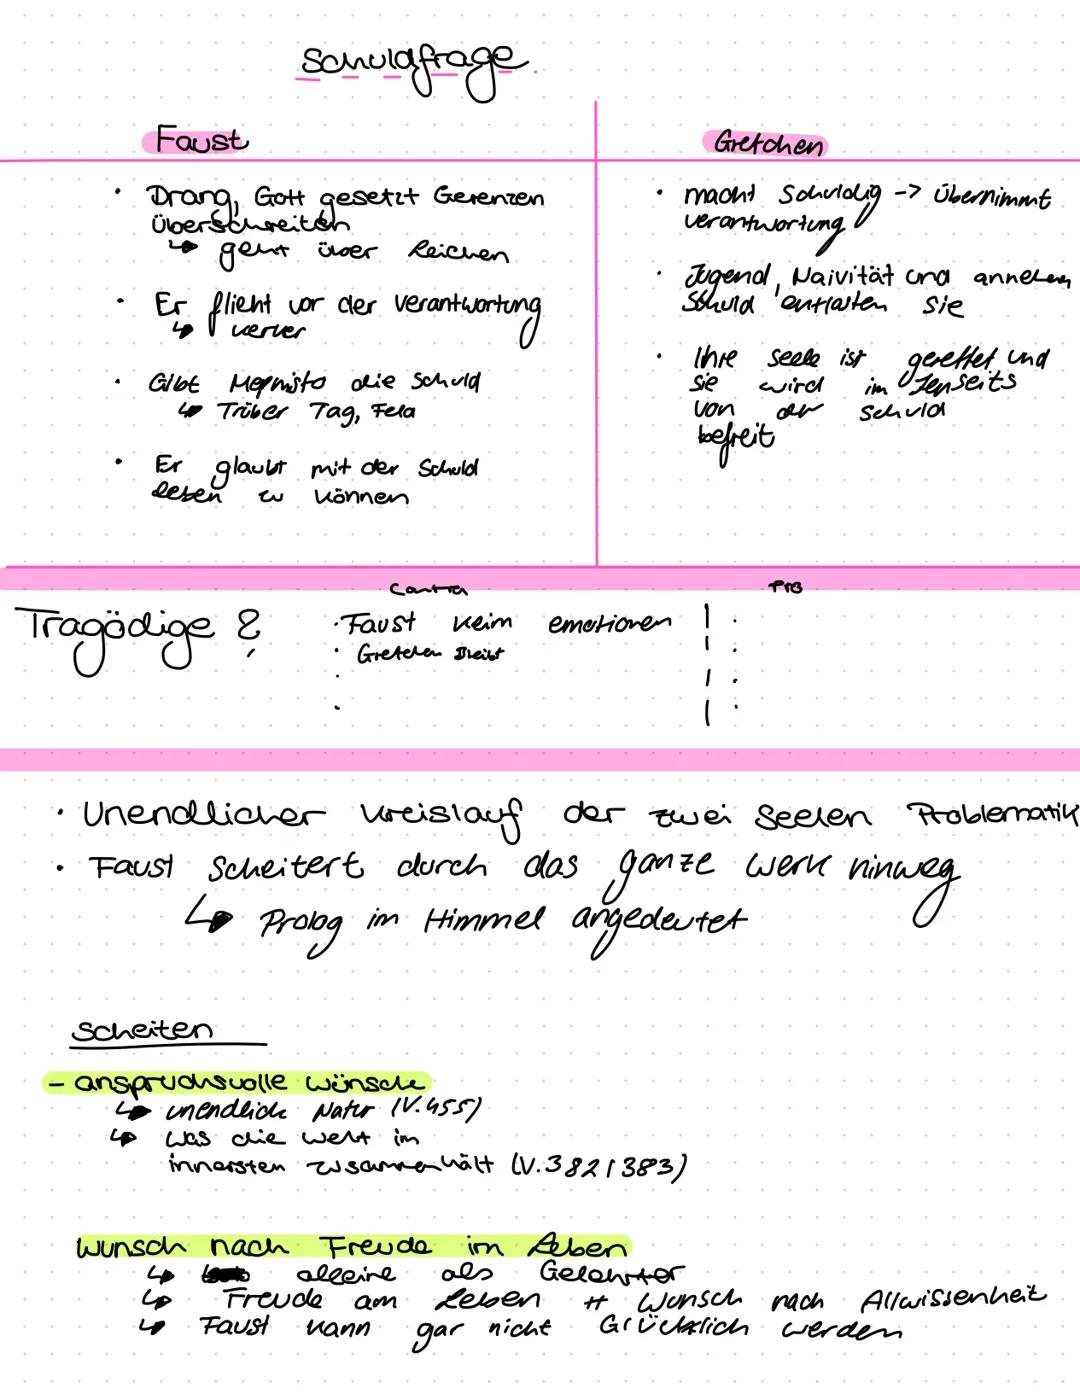 Schuldfrage
Faust
• Drang, Gott gesetzt Gerenzen
überschreiten
↳ geht über Leichen
• Er flieht vor der Verantwortung
↳ Kerker
• Gibt Mephisto die Schuld
↳ Trüber Tag, Feld
• Er glaubt mit der Schuld
leben zu können
Gretchen
• macht Schuldig -> übernimmt
verantwortung
• Jugend, Naivität und annehmen
Schuld entlasten sie
• Ihre Seele ist gerettet und
sie wird im Jenseits
von der Schuld
befreit
Tragödige ?
Contra
• Faust keim emotionen
• Gretchen bleibt
Pro
• Unendlicher Kreislauf der zwei Seelen Problematik
• Faust Scheitert durch das ganze Werk hinweg
↳ Prolog im Himmel angedeutet
Scheiten
- anspruchsvolle Wünsche
↳ unendlich Natur (V.455)
↳ Was die Welt im
innersten zusammenhält (V.382 / 383)
Wunsch nach Freude im Leben
↳ alleine als Gelehrter
↳ Freude am Leben # Wunsch nach Allwissenheit
↳ Faust kann gar nicht Glücklich werden